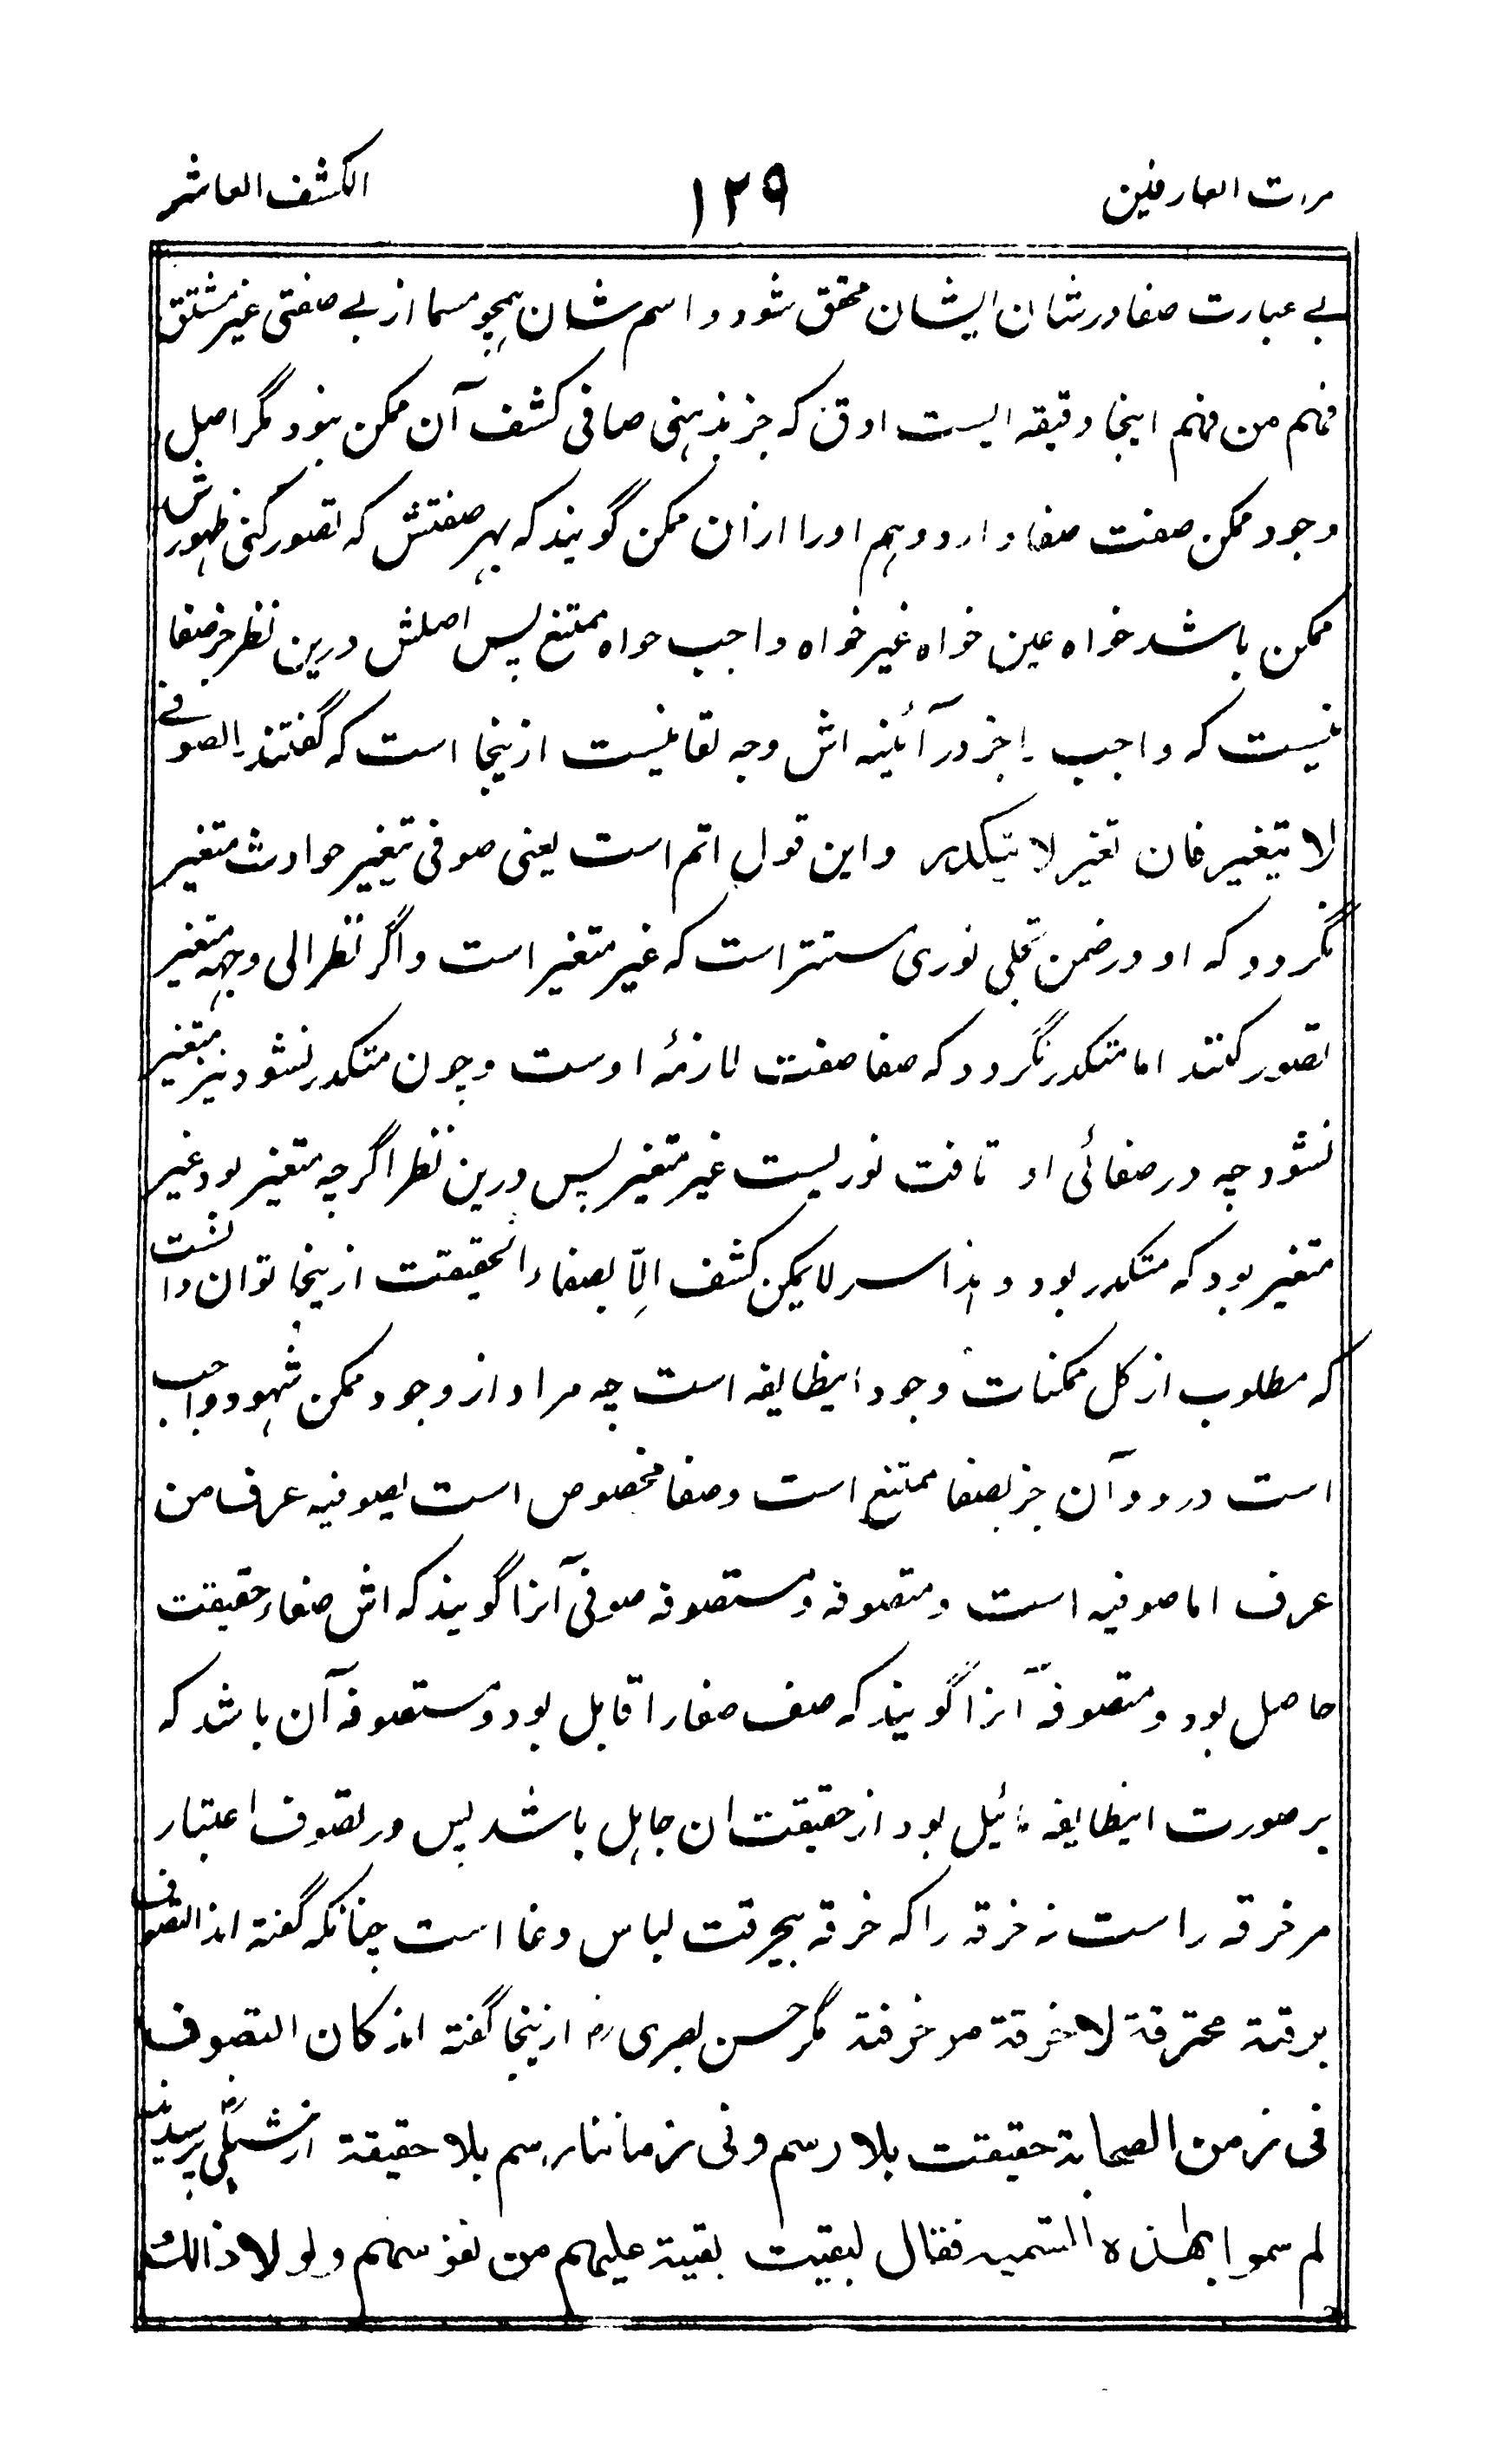 مرات العارفین ۱۲۹ الکشف العاشر
بے عبارت صفا در شان ایشان محقق شود و اسم شان همچو مسما از بے صفتی غیر مشتق
فهم من فهم اینجا دقیقه ایست ادق که جز بذهنی صافی کشف آن ممکن نبود مگر اصل
وجود ممکن صفت صفا دارد و هم او را ازان ممکن گویند که بهر صفتش که تصور کنی ظهورش
ممکن باشد خواه عین خواه غیر خواه واجب خواه ممتنع پس اصلش درین نظر جز صفا
نیست که واجب را جز در آئینه اش وجه لقا نیست ازینجا است که گفتند الصوفے
لا یتغیر فان تغیر لا یتکدر و این قول اتم است یعنی صوفی بتغییر حوادث متغیر
نگردد که او در ضمن تجلی نوری مستتر است که غیر متغیر است و اگر نظر الی وجهه متغیر
تصور کنند اما متکدر نگردد که صفا صفت لازمهٔ اوست و چون متکدر نشود نیز متغیر
نشود چه در صفائی او تافت نوریست غیر متغیر پس درین نظر اگرچه متغیر بود غیر
متغیر بود که متکدر بود و هذا سر لا یمکن کشف الّا بصفاء الحقیقت ازینجا توان دانست
که مطلوب از کل ممکنات وجود اینطایفه است چه مراد از وجود ممکن شهود واجب
است درو و آن جز بصفا ممتنع است و صفا مخصوص است بصوفیه عرف من
عرف اما صوفیه است و متصوفه و مستصوفه صوفی آنرا گویند که اش صفاء حقیقت
حاصل بود و متصوفه آنرا گویند که صف صفا را قابل بود و مستصوفه آن باشد که
بر صورت اینطایفه مائیل بود از حقیقت ان جاهل باشد پس در تصوف اعتبار
مر خرقه راست نه خرقه را که خرقه بیحرقت لباس دغا است چنانکه گفته اند التصوف
برقة محترقة لا خرقة مزخرفة مگر حسن بصری رض ازینجا گفته اند کان التصوف
فی زمن الصحابة حقیقت بلا رسم و فی زماننا رسم بلا حقیقة از شبلی رض پرسیدند
لم سموا بهذه التسمیه فقال لبقیت بقیة علیهم من نفوسهم و لولا ذالک